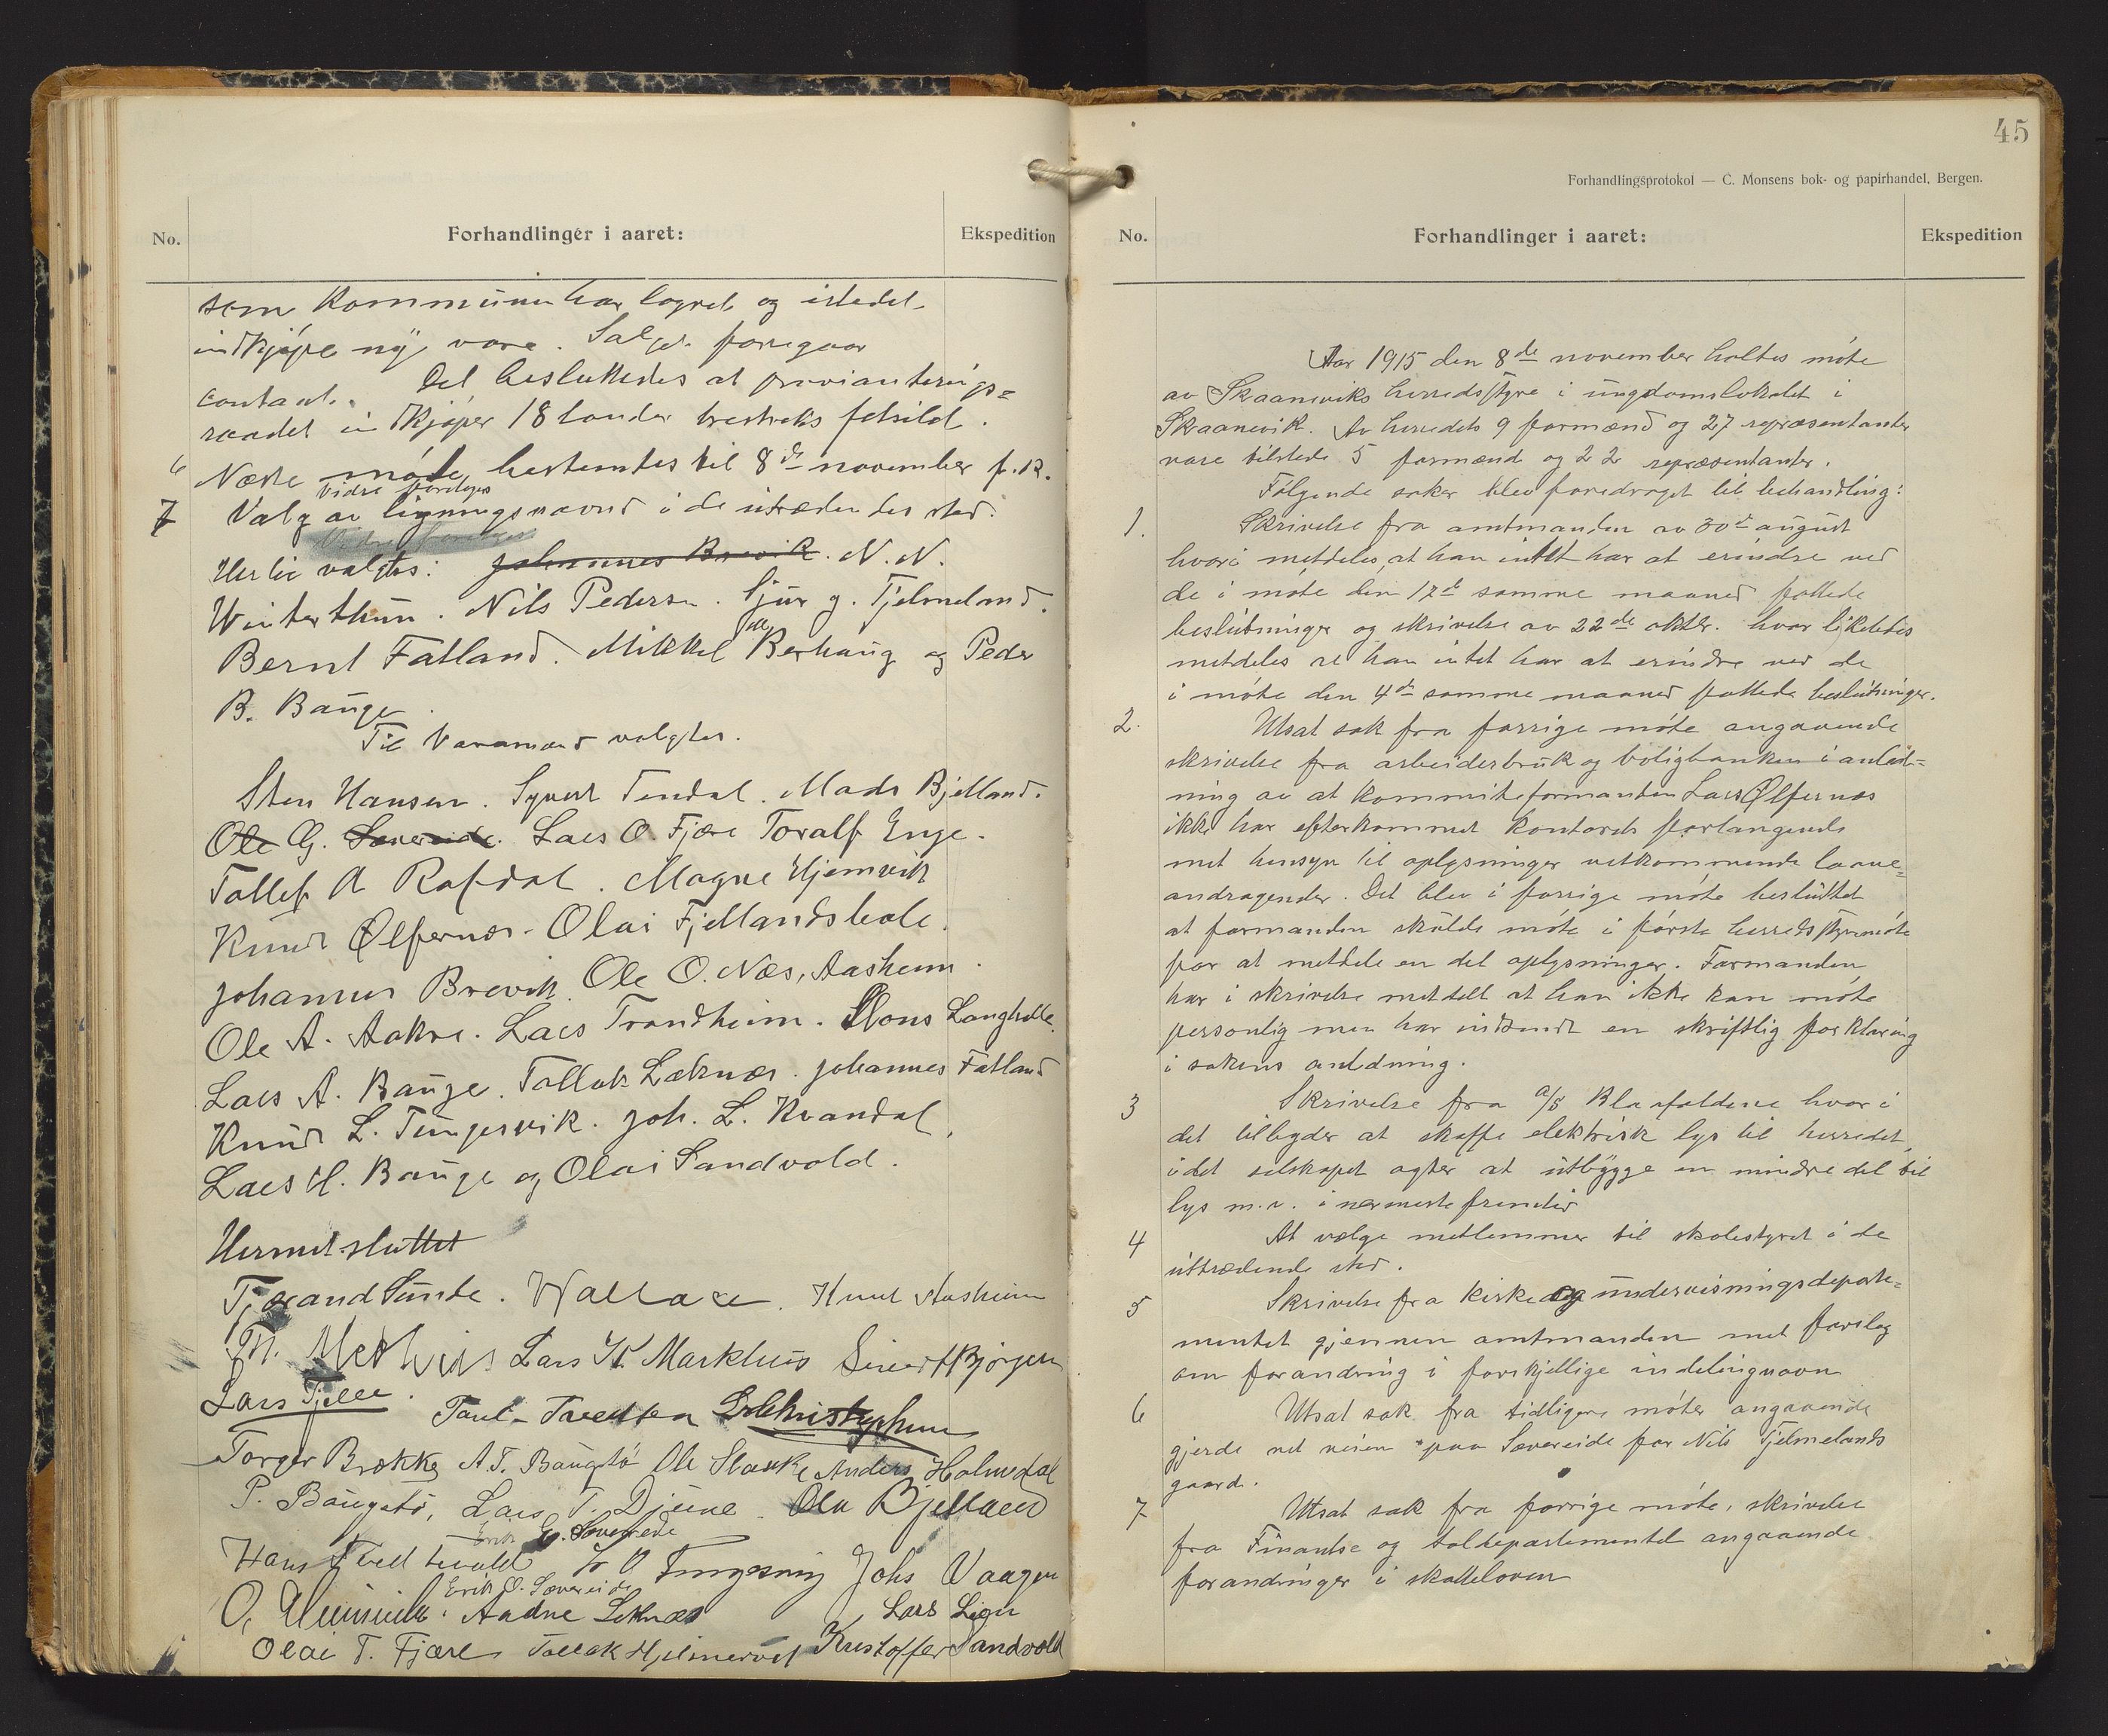 No.
Forhandlinger i aaret:
Ekspedition
som Kommunen har lagret og istedet
indkjöpe ny vare. Salget foregaar
contant. Det besluttedes at provianterings=
raadet indkjöper 18 tønder trestreks fetsild.
6 Næste møte bestemtes til 8de november f.k.
Vidre foretoges
7 Valg av ligningsnævnd i de utrædendes sted.
Hertil valgtes: Johannes Brevik. N. N.
Winterthun. Nils Pedersen. Sjur G. Tjelmeland.
Bernt Fatland. Mikkel M Berhaug og Peder
B. Bauge.
Til Varamænd valgtes.
Sten Hansen. Syvert Tendal. Mads Bjelland.
Ole G. Sævereide. Lars O. Fjære Toralf Enge.
Tollef A Rafdal. Magne Hjemvik
Knud Ølfernes. Olai Fjellandsbole.
Johannes Brevik. Ole O. Næs, Aasheim.
Ole A. Aakre. Lars Trondheim. Mons Langhelle.
Lars A. Bauge. Tollak Læknæs. Johannes Fatland
Knud L. Tungesvik. Joh. L. Kvandal,
Lars H. Bauge og Olai Sandvold.
Hermed sluttet
Tjerand Sunde. Wallace. Knut Aasheim
Lars K. Markhus Sivert Bjørgen
Lars Tjelle. Paul Tvedten Christophersen
Torger Brekke A. T. Baugstö Ole Anders Holmedal
P. Baugstö, Lars T. Djuve. Ola Bjelland
Erik G. Sævereide
Hans Tvedt O Tungesvig Johs Vaagen
Erik O. Sævereide
O. Aadne Leknæs Lars Lien
Olai T. Fjære Tollak Hjelmervik Kristoffer Sandvold
45
Forhandlingsprotokol — C. Monsens bok- og papirhandel, Bergen.
No.
Forhandlinger i aaret:
Ekspedition
Aar 1915 den 8de november holtes möte
av Skaaneviks herredsstyre i ungdomslokalet i
Skaanevik. Av herredets 9 formænd og 27 repræsentanter
vare tilstede 5 formænd og 22 repræsentanter.
Fölgende saker blev foredraget til behandling:
1. Skrivelse fra amtmanden av 30te august
hvori meddeles, at han intet har at erindre ved
de i möte den 17de samme maaned fattede
beslutninger og skrivelse av 22de oktbr. hvor likeledes
meddeles at han intet har at erindre ved de
i möte den 4de samme maaned fattede beslutninger.
2. Utsat sak fra forrige möte angaaende
skrivelse fra arbeiderbruk og boligbanken i anled=
ning av at kommiteformanden Lars Ølfernæs
ikke har efterkommet kontorets forlangende
med hensyn til oplysninger vedkommende laane=
andragender. Det blev i forrige möte besluttet
at formanden skulde möte i förste herredsstyremöte
for at meddele en del oplysninger. Formanden
har i skrivelse meddelt at han ikke kan möte
personlig men har indsendt en skriftlig forklaring
i sakens anledning.
3 Skrivelse fra a/s Blaafaldene hvori
det tilbyder at skaffe elektrisk lys til herredet,
idet selskapet agter at utbygge en mindre del til
lys m.v. i nærmeste fremtid
4 At vælge medlemmer til skolestyret i de
uttrædende sted.
5 Skrivelse fra kirke og undervisningsdeparte=
mentet gjennem amtmanden med forslag
om forandring i forskjellige indelingnavn
6 Utsat sak fra tidligere möter angaaende
gjerde ved veien paa Sævereide for Nils Tjelmelands
gaard.
7 Utsat sak fra forrige möte, skrivelse
fra Finantse og toldepartementet angaaende
forandringer i skatteloven